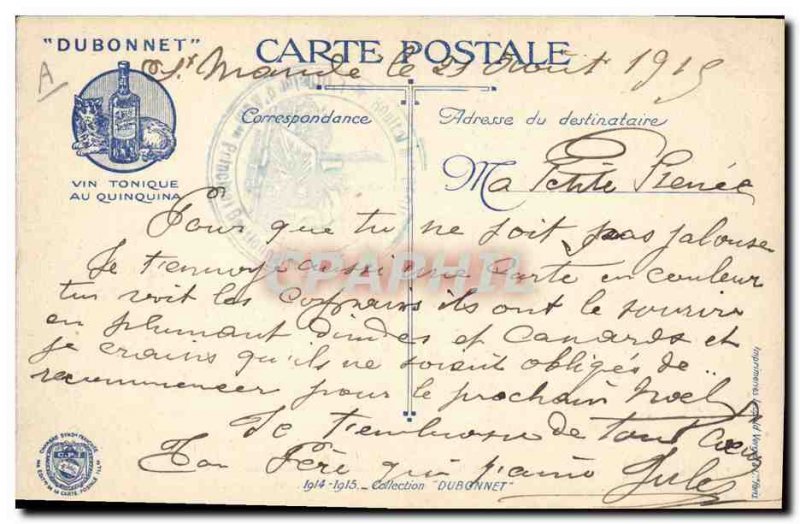 "DUBONNET"
CARTE POSTALE
A
St Mandé le 21 Août 1915
Correspondance
Adresse du destinataire
VIN TONIQUE
AU QUINQUINA
Ma Petite Renée
Pour que tu ne soit pas jalouse
Je t'envoye aussi une Carte en couleur
tu voit les Copains ils ont le sourire
en plumant dindes et Canards et
je crains qu'ils ne soient obligés de ..
recommencer pour le prochain Noel
Je t'embrasse de tout Cœur
Ton Père qui t'aime Jules
CPAPHIL
1914-1915._ Collection "DUBONNET"
Imprimeries